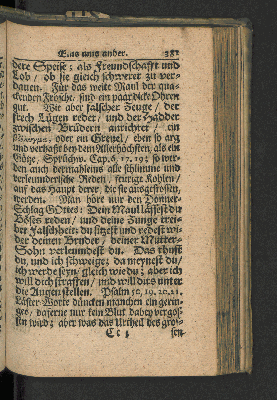 Eins ums ander. 381
dere Speise; als Freundschafft und
Lob / ob sie gleich schwerer zu ver-
dauen. Für das weite Maul der qua-
ckenden Frösche, sind ein paar dicke Ohren
gut. Wie aber falscher Zeuge / der
frech Lügen redet / und der Hadder
zwischen Brüdern anrichtet / ein
oder ein Greuel / eben so arg
und verhaßt bey dem Allerhöchsten, als ein
Götze, Sprüchw. Cap. 6, 17. 19: so wer-
den auch dermahleins alle schlimme und
verleumderische Reden / feurige Kohlen /
auf das Haupt derer, die sie ausgestossen,
werden. Man höre nur den Donner-
Schlag GOttes: Dein Maul lässest du
Böses reden / und deine Zunge trei-
bet Falschheit: du sitzest und redest wi-
der deinen Bruder / deiner Mutter-
Sohn verleumdest du. Das thust
du, und ich schweige; da meynest du /
ich werde seyn / gleich wie du; aber ich
will dich straffen / und will dirs unter
die Augen stellen. Psalm 50, 19. 20. 21.
Läster-Worte düncken manchen ein gerin-
ges, daferne nur kein Blut dabey vergos-
sen wird; aber was das Urtheil des gro-
sen